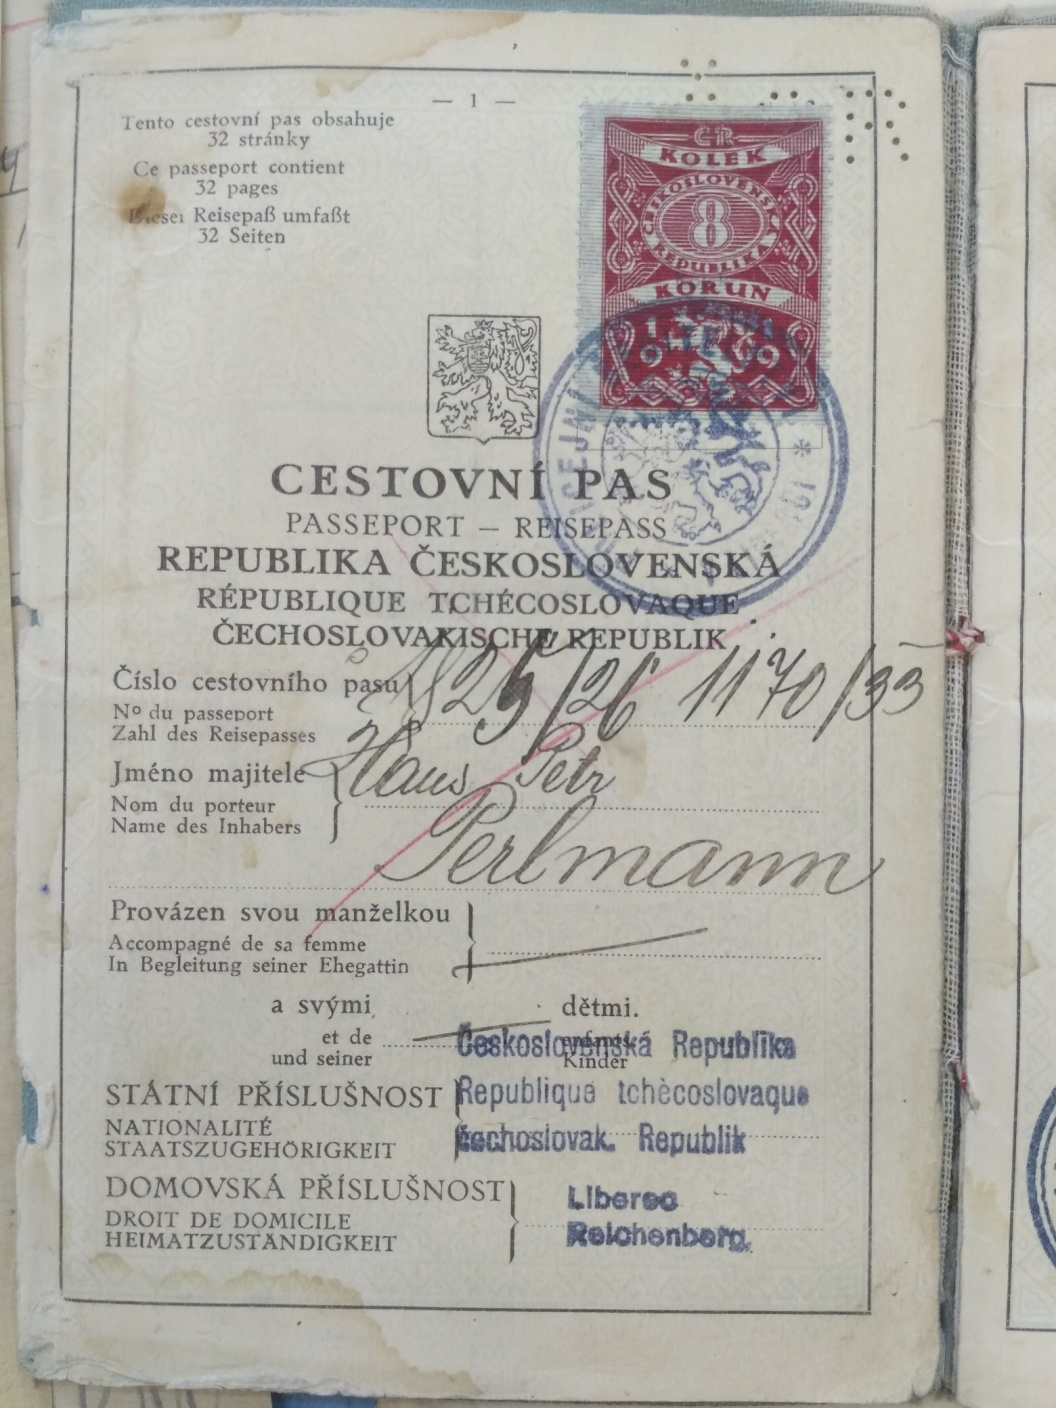 — 1 —
Tento cestovní pas obsahuje
32 stránky
Ce passeport contient
32 pages
Dieser Reisepaß umfaßt
32 Seiten
ČR
KOLEK
ČESKOSLOVENSKÁ
8
REPUBLIKA
KORUN
1919
CESTOVNÍ PAS
PASSEPORT – REISEPASS
REPUBLIKA ČESKOSLOVENSKÁ
RÉPUBLIQUE TCHÉCOSLOVAQUE
ČECHOSLOVAKISCHE REPUBLIK
Číslo cestovního pasu
No du passeport
Zahl des Reisepasses
1170/33
Jméno majitele
Nom du porteur
Name des Inhabers
Hans Petr
Perlmann
Provázen svou manželkou
Accompagné de sa femme
In Begleitung seiner Ehegattin
a svými dětmi.
et de enfants
und seiner Kinder
Československá Republika
STÁTNÍ PŘÍSLUŠNOST
NATIONALITÉ
STAATSZUGEHÖRIGKEIT
Republique tchècoslovaque
čechoslovak. Republik
DOMOVSKÁ PŘÍSLUŠNOST
DROIT DE DOMICILE
HEIMATZUSTÄNDIGKEIT
Liberec
Reichenberg.